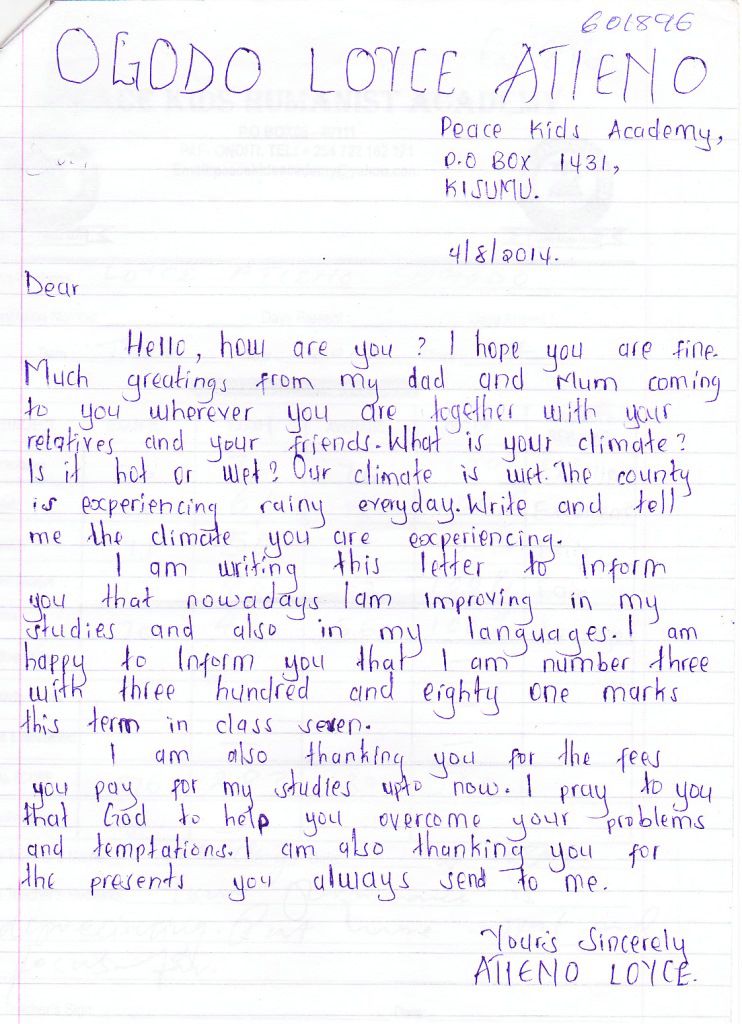 601896
OGODO LOYCE ATIENO
Peace Kids Academy,
P.O BOX 1431,
KISUMU.
4/8/2014.
Dear
Hello, how are you? I hope you are fine.
Much greatings from my dad and Mum coming
to you wherever you are together with your
relatives and your friends. What is your climate?
Is it hot or wet? Our climate is wet. The county
is experiencing rainy everyday. Write and tell
me the climate you are experiencing.
I am writing this letter to Inform
you that nowadays I am improving in my
studies and also in my languages. I am
happy to Inform you that I am number three
with three hundred and eighty one marks
this term in class seven.
I am also thanking you for the fees
you pay for my studies upto now. I pray to you
that God to help you overcome your problems
and temptations. I am also thanking you for
the presents you always send to me.
Your's Sincerely
ATIENO LOYCE.